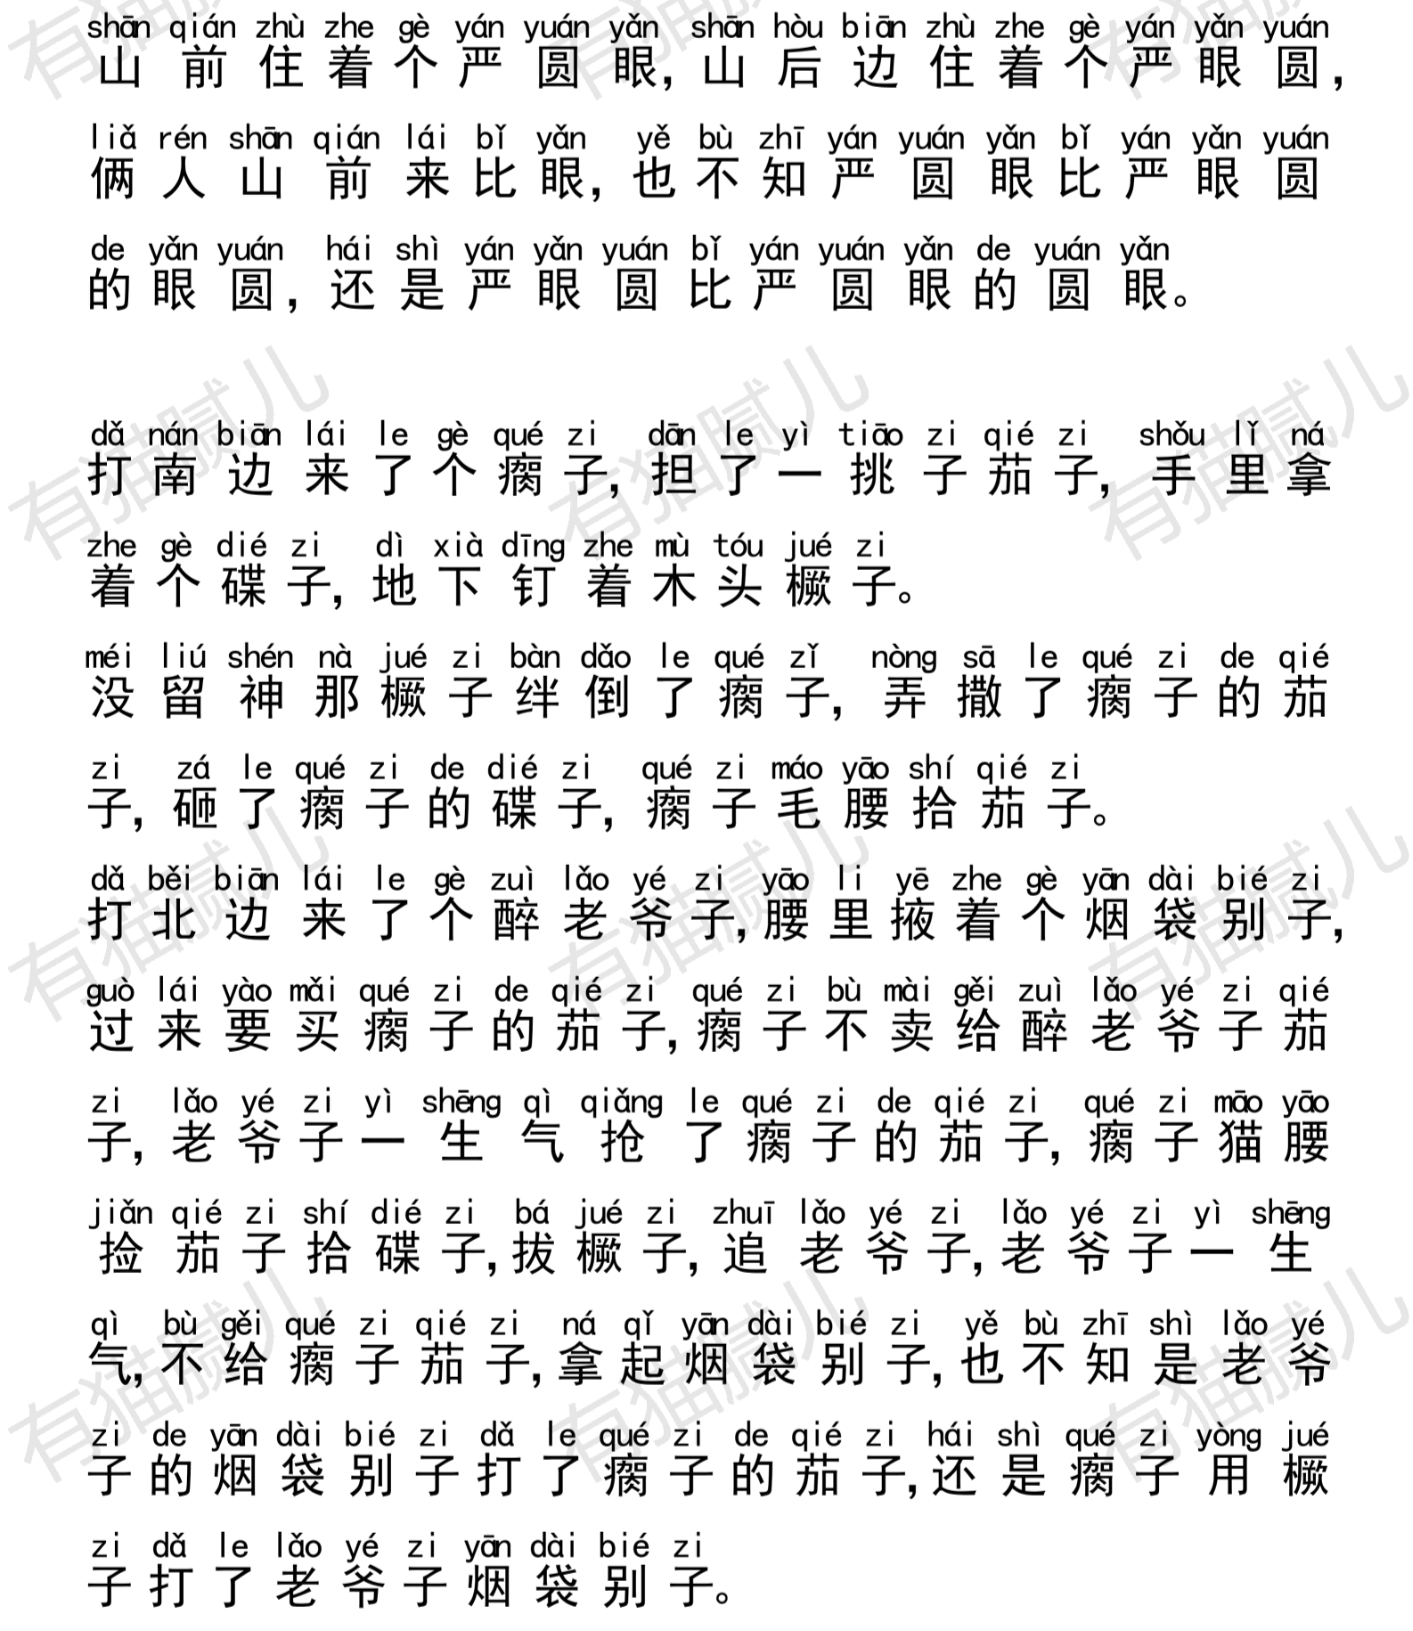 shān qián zhù zhe gè yán yuán yǎn shān hòu biān zhù zhe gè yán yǎn yuán
山前住着个严圆眼,山后边住着个严眼圆,
liǎ rén shān qián lái bǐ yǎn yě bù zhī yán yuán yǎn bǐ yán yǎn yuán
俩人山前来比眼,也不知严圆眼比严眼圆
de yǎn yuán hái shì yán yǎn yuán bǐ yán yuán yǎn de yuán yǎn
的眼圆,还是严眼圆比严圆眼的圆眼。
dǎ nán biān lái le gè qué zi dān le yì tiāo zi qié zi shǒu lǐ ná
打南边来了个瘸子,担了一挑子茄子,手里拿
zhe gè dié zi dì xià dīng zhe mù tóu jué zi
着个碟子,地下钉着木头橛子。
méi liú shén nà jué zi bàn dǎo le qué zǐ nòng sā le qué zi de qié
没留神那橛子绊倒了瘸子,弄撒了瘸子的茄
zi zá le qué zi de dié zi qué zi máo yāo shí qié zi
子,砸了瘸子的碟子,瘸子毛腰拾茄子。
dǎ běi biān lái le gè zuì lǎo yé zi yāo li yē zhe gè yān dài bié zi
打北边来了个醉老爷子,腰里掖着个烟袋别子,
guò lái yào mǎi qué zi de qié zi qué zi bù mài gěi zuì lǎo yé zi qié
过来要买瘸子的茄子,瘸子不卖给醉老爷子茄
zi lǎo yé zi yì shēng qì qiǎng le qué zi de qié zi qué zi māo yāo
子,老爷子一生气抢了瘸子的茄子,瘸子猫腰
jiǎn qié zi shí dié zi bá jué zi zhuī lǎo yé zi lǎo yé zi yì shēng
捡茄子拾碟子,拔橛子,追老爷子,老爷子一生
qì bù gěi qué zi qié zi ná qǐ yān dài bié zi yě bù zhī shì lǎo yé
气,不给瘸子茄子,拿起烟袋别子,也不知是老爷
zi de yān dài bié zi dǎ le qué zi de qié zi hái shì qué zi yòng jué
子的烟袋别子打了瘸子的茄子,还是瘸子用橛
zi dǎ le lǎo yé zi yān dài bié zi
子打了老爷子烟袋别子。
有猫腻儿
有猫腻儿
有猫腻儿
有猫腻儿
有猫腻儿
有猫腻儿
有猫腻儿
有猫腻儿
有猫腻儿